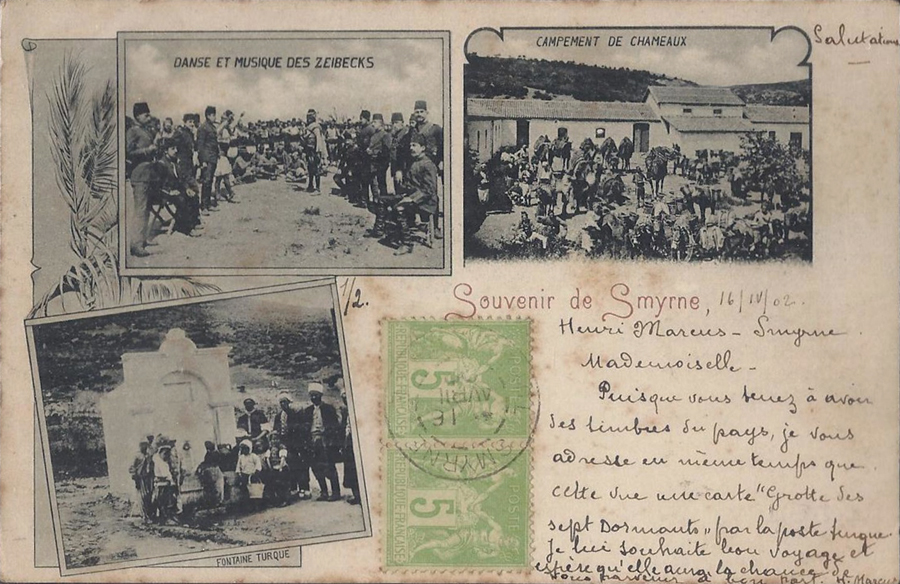 DANSE ET MUSIQUE DES ZEIBECKS
CAMPEMENT DE CHAMEAUX
Salutations
FONTAINE TURQUE
1/2.
Souvenir de Smyrne, 16/IV/02.
Henri Marcus - Smyrne.
Mademoiselle -
Puisque vous tenez à avoir
des timbres du pays, je vous
adresse en même temps que
cette vue une carte "Grotte des
sept Dormants" par la poste turque
Je lui souhaite bon voyage et
espère qu'elle aura la chance de
vous parvenir à bon port. H. Marcus
REPUBLIQUE FRANÇAISE
5
POSTES
REPUBLIQUE FRANÇAISE
5
SMYRNE
16
AVRIL